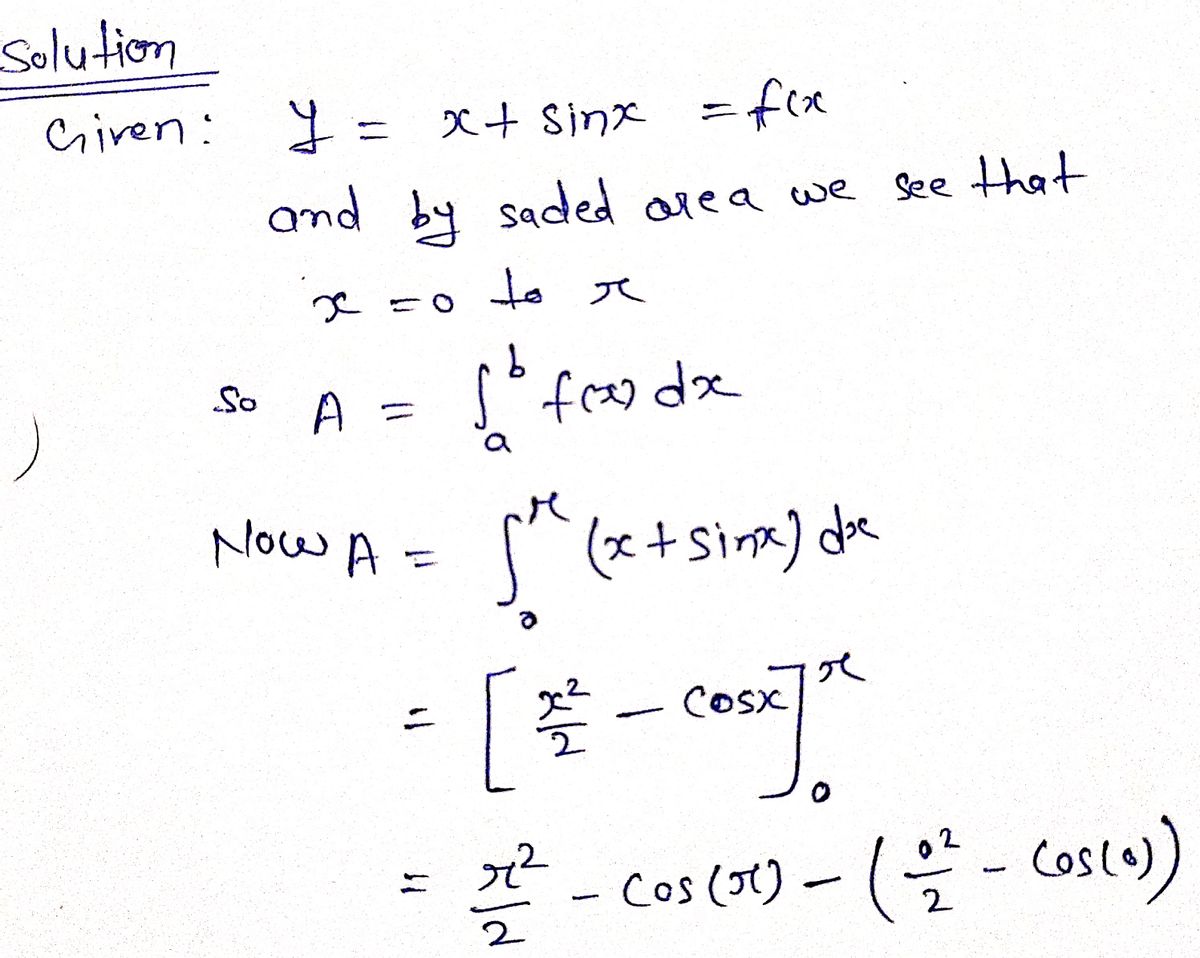 Solution
Given: y = x + sinx = f(x
and by saded area we see that
x = 0 to π
So A = ∫ₐᵇ f(x) dx
Now A = ∫₀^π (x + sinx) dx
= [x²/2 − cosx]₀^π
= π²/2 − cos(π) − (0²/2 − cos(0))